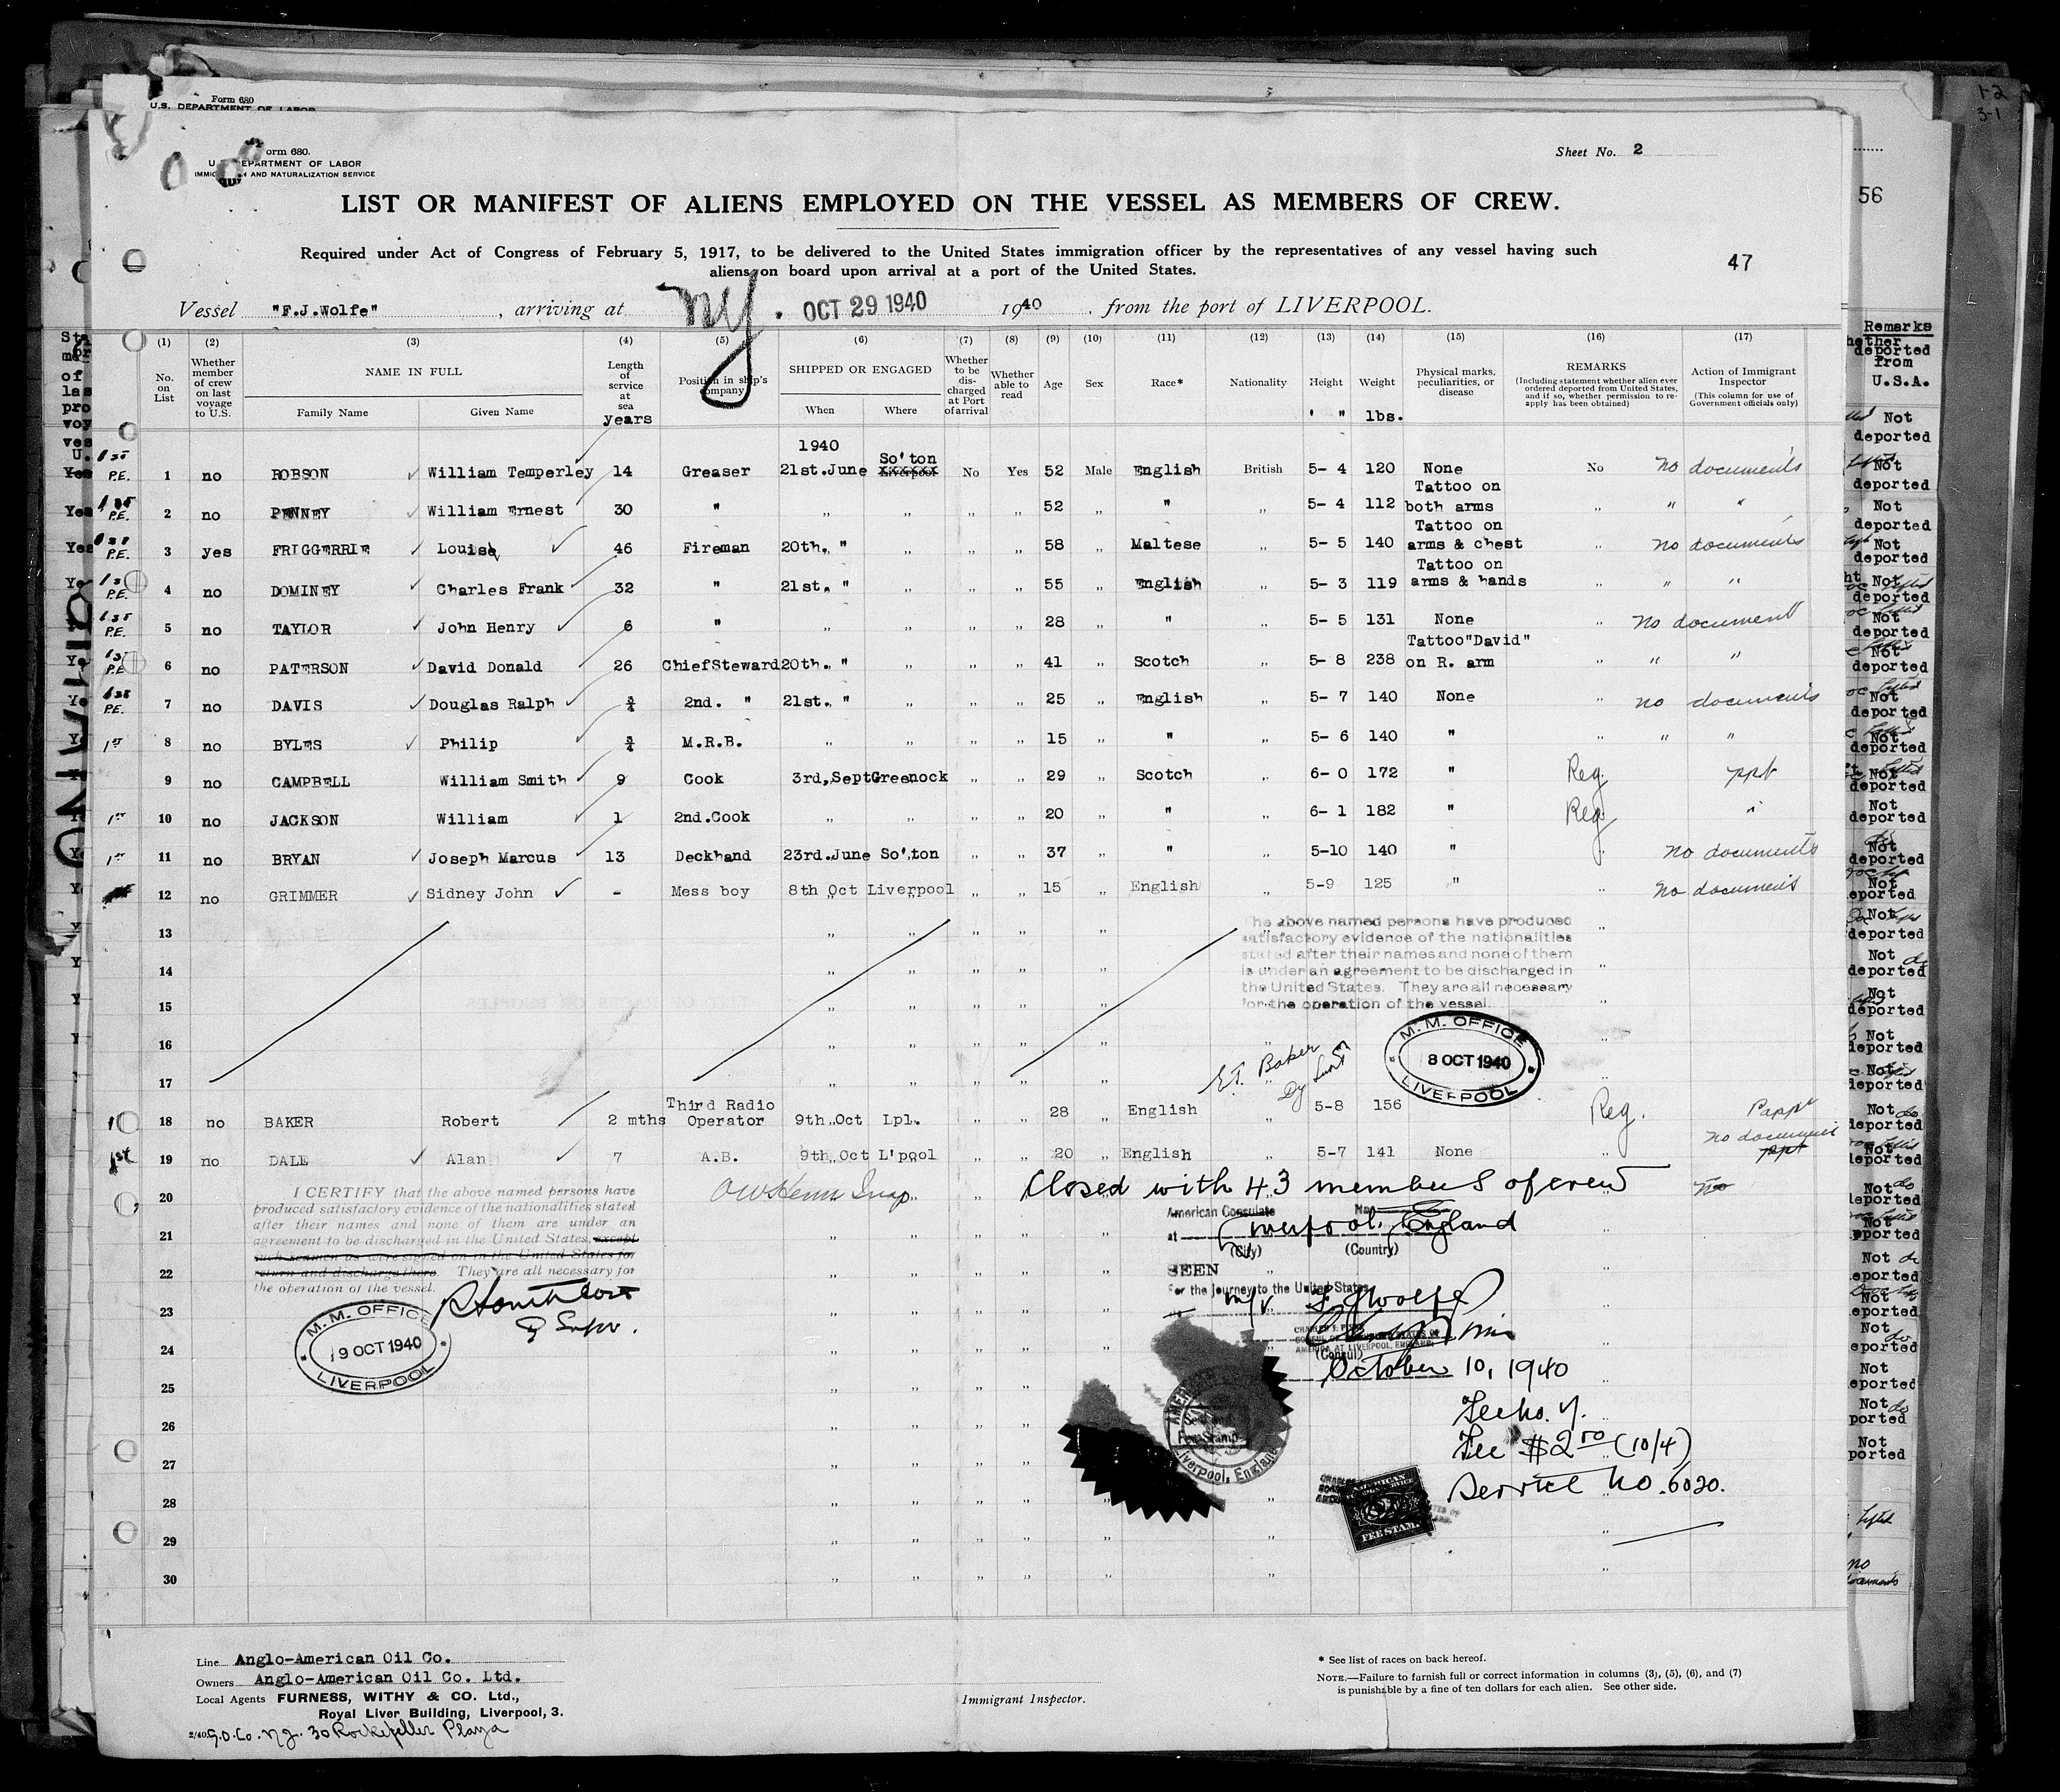 Form 680
U.S. DEPARTMENT OF LABOR
1-2
3-1
56
Form 680.
U. DEPARTMENT OF LABOR
IMMIG N AND NATURALIZATION SERVICE
Sheet No. 2
LIST OR MANIFEST OF ALIENS EMPLOYED ON THE VESSEL AS MEMBERS OF CREW.
Required under Act of Congress of February 5, 1917, to be delivered to the United States immigration officer by the representatives of any vessel having such
aliens on board upon arrival at a port of the United States.
47
Vessel "F.J.Wolfe" , arriving at ny. OCT 29 1940 1940 . from the port of LIVERPOOL.
(1) (2) (3) (4) (5) (6) (7) (8) (9) (10) (11) (12) (13) (14) (15) (16) (17)
No. on List
Whether member of crew on last voyage to U.S.
NAME IN FULL
Family Name Given Name
Length of service at sea years
Position in ship's company
SHIPPED OR ENGAGED
When Where
Whether to be discharged at Port of arrival
Whether able to read
Age Sex Race* Nationality Height Weight
' " lbs.
Physical marks, peculiarities, or disease
REMARKS
(Including statement whether alien ever ordered deported from United States, and if so, whether permission to reapply has been obtained)
Action of Immigrant Inspector
(This column for use of Government officials only)
1940
P.E. 1 no ROBSON William Temperley 14 Greaser 21st.June So'ton Liverpool No Yes 52 Male English British 5- 4 120 None No no documents
P.E. 2 no PENNEY William Ernest 30 " ,, ,, ,, ,, 52 ,, " ,, 5- 4 112 Tattoo on both arms ,, " "
P.E. 3 yes FRIGGERRIE Louise 46 Fireman 20th. " ,, ,, ,, 58 ,, Maltese ,, 5- 5 140 Tattoo on arms & chest ,, no documents
P.E. 4 no DOMINEY Charles Frank 32 " 21st. " ,, ,, ,, 55 ,, English ,, 5- 3 119 Tattoo on arms & hands ,, " "
P.E. 5 no TAYLOR John Henry 6 " ,, ,, ,, ,, 28 ,, " ,, 5- 5 131 None ,, no document
P.E. 6 no PATERSON David Donald 26 ChiefSteward 20th. " ,, ,, ,, 41 ,, Scotch ,, 5- 8 238 Tattoo"David" on R. arm ,, " "
P.E. 7 no DAVIS Douglas Ralph ¾ 2nd. " 21st. " ,, ,, ,, 25 ,, English ,, 5- 7 140 None ,, no documents
1st 8 no BYLES Philip ¾ M.R.B. ,, ,, ,, ,, 15 ,, " ,, 5- 6 140 " ,, " "
9 no CAMPBELL William Smith 9 Cook 3rd,Sept Greenock ,, ,, 29 ,, Scotch ,, 6- 0 172 " Reg. ppt
1st 10 no JACKSON William 1 2nd.Cook ,, ,, ,, ,, 20 ,, " ,, 6- 1 182 " Reg "
1st 11 no BRYAN Joseph Marcus 13 Deckhand 23rd.June So'ton ,, ,, 37 ,, " ,, 5-10 140 " ,, no documents
12 no GRIMMER Sidney John - Mess boy 8th Oct Liverpool ,, ,, 15 ,, English ,, 5-9 125 " ,, no document
13
14
15
16
17
The above named persons have produced
satisfactory evidence of the nationalities
stated after their names and none of them
is under an agreement to be discharged in
the United States. They are all necessary
for the operation of the vessel.
E.T. Baker
Dy Supt
M. M. OFFICE
8 OCT 1940
LIVERPOOL
18 no BAKER Robert 2 mths Third Radio Operator 9th Oct Lpl. ,, ,, 28 ,, English ,, 5-8 156 Reg. Pappt
1st 19 no DALE Alan 7 A.B. 9th Oct L'pool ,, ,, 20 ,, English ,, 5-7 141 None no document ppt
20 Closed with 43 members of crew no
21
22
23
24
25
26
27
28
29
30
I CERTIFY that the above named persons have
produced satisfactory evidence of the nationalities stated
after their names and none of them are under an
agreement to be discharged in the United States, except
such seamen as were signed on in the United States for
return and discharge there. They are all necessary for
the operation of the vessel.
M. M. OFFICE
9 OCT 1940
LIVERPOOL
American Consulate
No.
at Liverpool, England
(City) (Country)
SEEN
For the Journey to the United States
m/v F. J. Wolfe
(Consul)
October 10, 1940
Fee Stamp
Liverpool, England
Fee $2 50 (10/4)
Service No. 6020.
FEE STAMP
Line Anglo-American Oil Co.
Owners Anglo-American Oil Co. Ltd.
Local Agents FURNESS, WITHY & CO. Ltd.,
Royal Liver Building, Liverpool, 3.
S.O.Co. N.J. 30 Rockefeller Plaza
Immigrant Inspector.
* See list of races on back hereof.
NOTE.—Failure to furnish full or correct information in columns (3), (5), (6), and (7)
is punishable by a fine of ten dollars for each alien. See other side.
Remarks
deported
from
U.S.A.
Not
deported
Not
deported
Not
deported
Not
deported